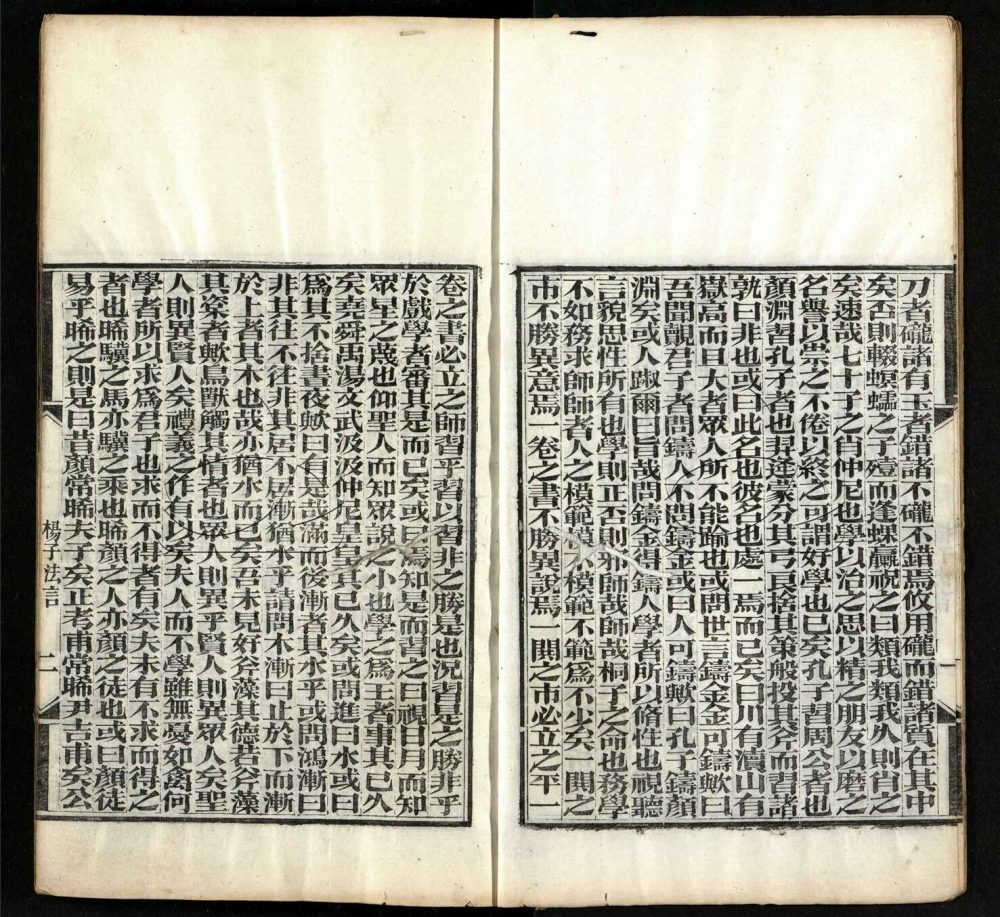 刀者礲諸有玉者錯諸不礲不錯焉攸用礲而錯諸質在其中
矣否則輟螟蠕之子殪而逢蜾蠃祝之曰類我類我久則肖之
矣速哉七十子之肖仲尼也學以治之思以精之朋友以磨之
名譽以崇之不倦以終之可謂好學也已矣孔子習周公者也
顏淵習孔子者也羿逢蒙分其弓良捨其策般投其斧而習諸
孰曰非也或曰此名也彼名也處一焉而已矣曰川有瀆山有
嶽高而且大者眾人所不能踰也或問世言鑄金金可鑄歟曰
吾聞覿君子者問鑄人不問鑄金或曰人可鑄歟曰孔子鑄顏
淵矣或人踧爾曰旨哉問鑄金得鑄人學者所以脩性也視聽
言貌思性所有也學則正否則邪師哉師哉桐子之命也務學
不如務求師師者人之模範模不模範不範為不少矣一鬨之
市不勝異意焉一卷之書不勝異說焉一鬨之市必立之平一
一
卷之書必立之師習乎習以習非之勝是也況習是之勝非乎
於戲學者審其是而已矣或曰焉知是而習之曰視日月而知
眾星之蔑也仰聖人而知眾說之小也學之為王者事其已久
矣堯舜禹湯文武汲汲仲尼皇皇其已久矣或問進曰水或曰
為其不捨晝夜歟曰有是哉滿而後漸者其水乎或問鴻漸曰
非其往不往非其居不居漸猶水乎請問木漸曰止於下而漸
於上者其木也哉亦猶水而已矣吾未見好斧藻其德若斧藻
其楶者歟鳥獸觸其情者也眾人則異乎賢人則異眾人矣聖
人則異賢人矣禮義之作有以矣夫人而不學雖無憂如禽何
學者所以求為君子也求而不得者有矣夫未有不求而得之
者也睎驥之馬亦驥之乘也睎顏之人亦顏之徒也或曰顏徒
易乎睎之則是曰昔顏常睎夫子矣正考甫常睎尹吉甫矣公
楊子法言 二